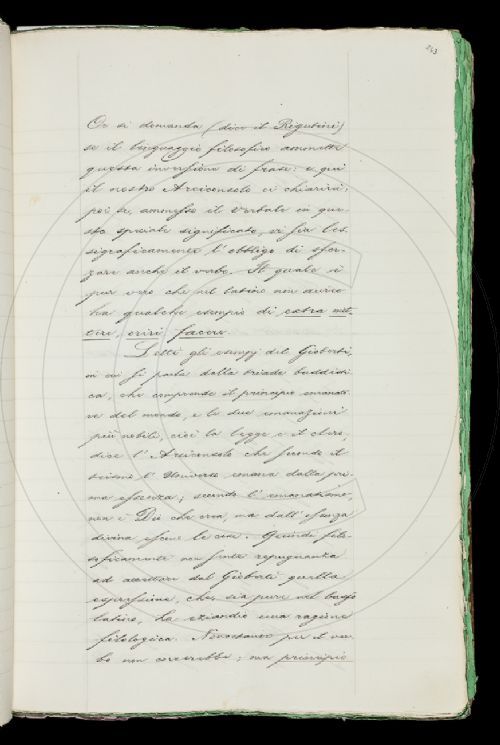 243
Or si domanda (dice il Rigutini)
se il linguaggio filosofico ammette
questa inversione di frase: e qui
il nostro Arciconsolo ci chiarirà,
poi se, ammesso il verbale in que-
sto speciale significato, vi sia les-
sigraficamente l'obbligo di sfor-
zare anche il verbo. Il quale si
pur vero che nel latino non aureo
ha qualche esempio di extra mit-
tere, facere.
Letti gli esempj del Gioberti,
in cui si parla della triade buddisti-
ca, che comprende il principio emanati-
vo del mondo, e le due emanazioni
più nobili, cioè la legge e il clero,
dice l'Arciconsolo che secondo il
l'Universo, emana dalla pri-
ma essenza; secondo l'emanatismo,
non è Dio che crea, ma dall'essenza
divina le cose. Quindi filo-
soficamente non sente repugnanza
ad accettare dal Gioberti quella
espressione, che, sia pure nel basso
latino, ha eziandio una ragione
filologica. Nonostante per il ver-
bo non correrebbe; ma principio